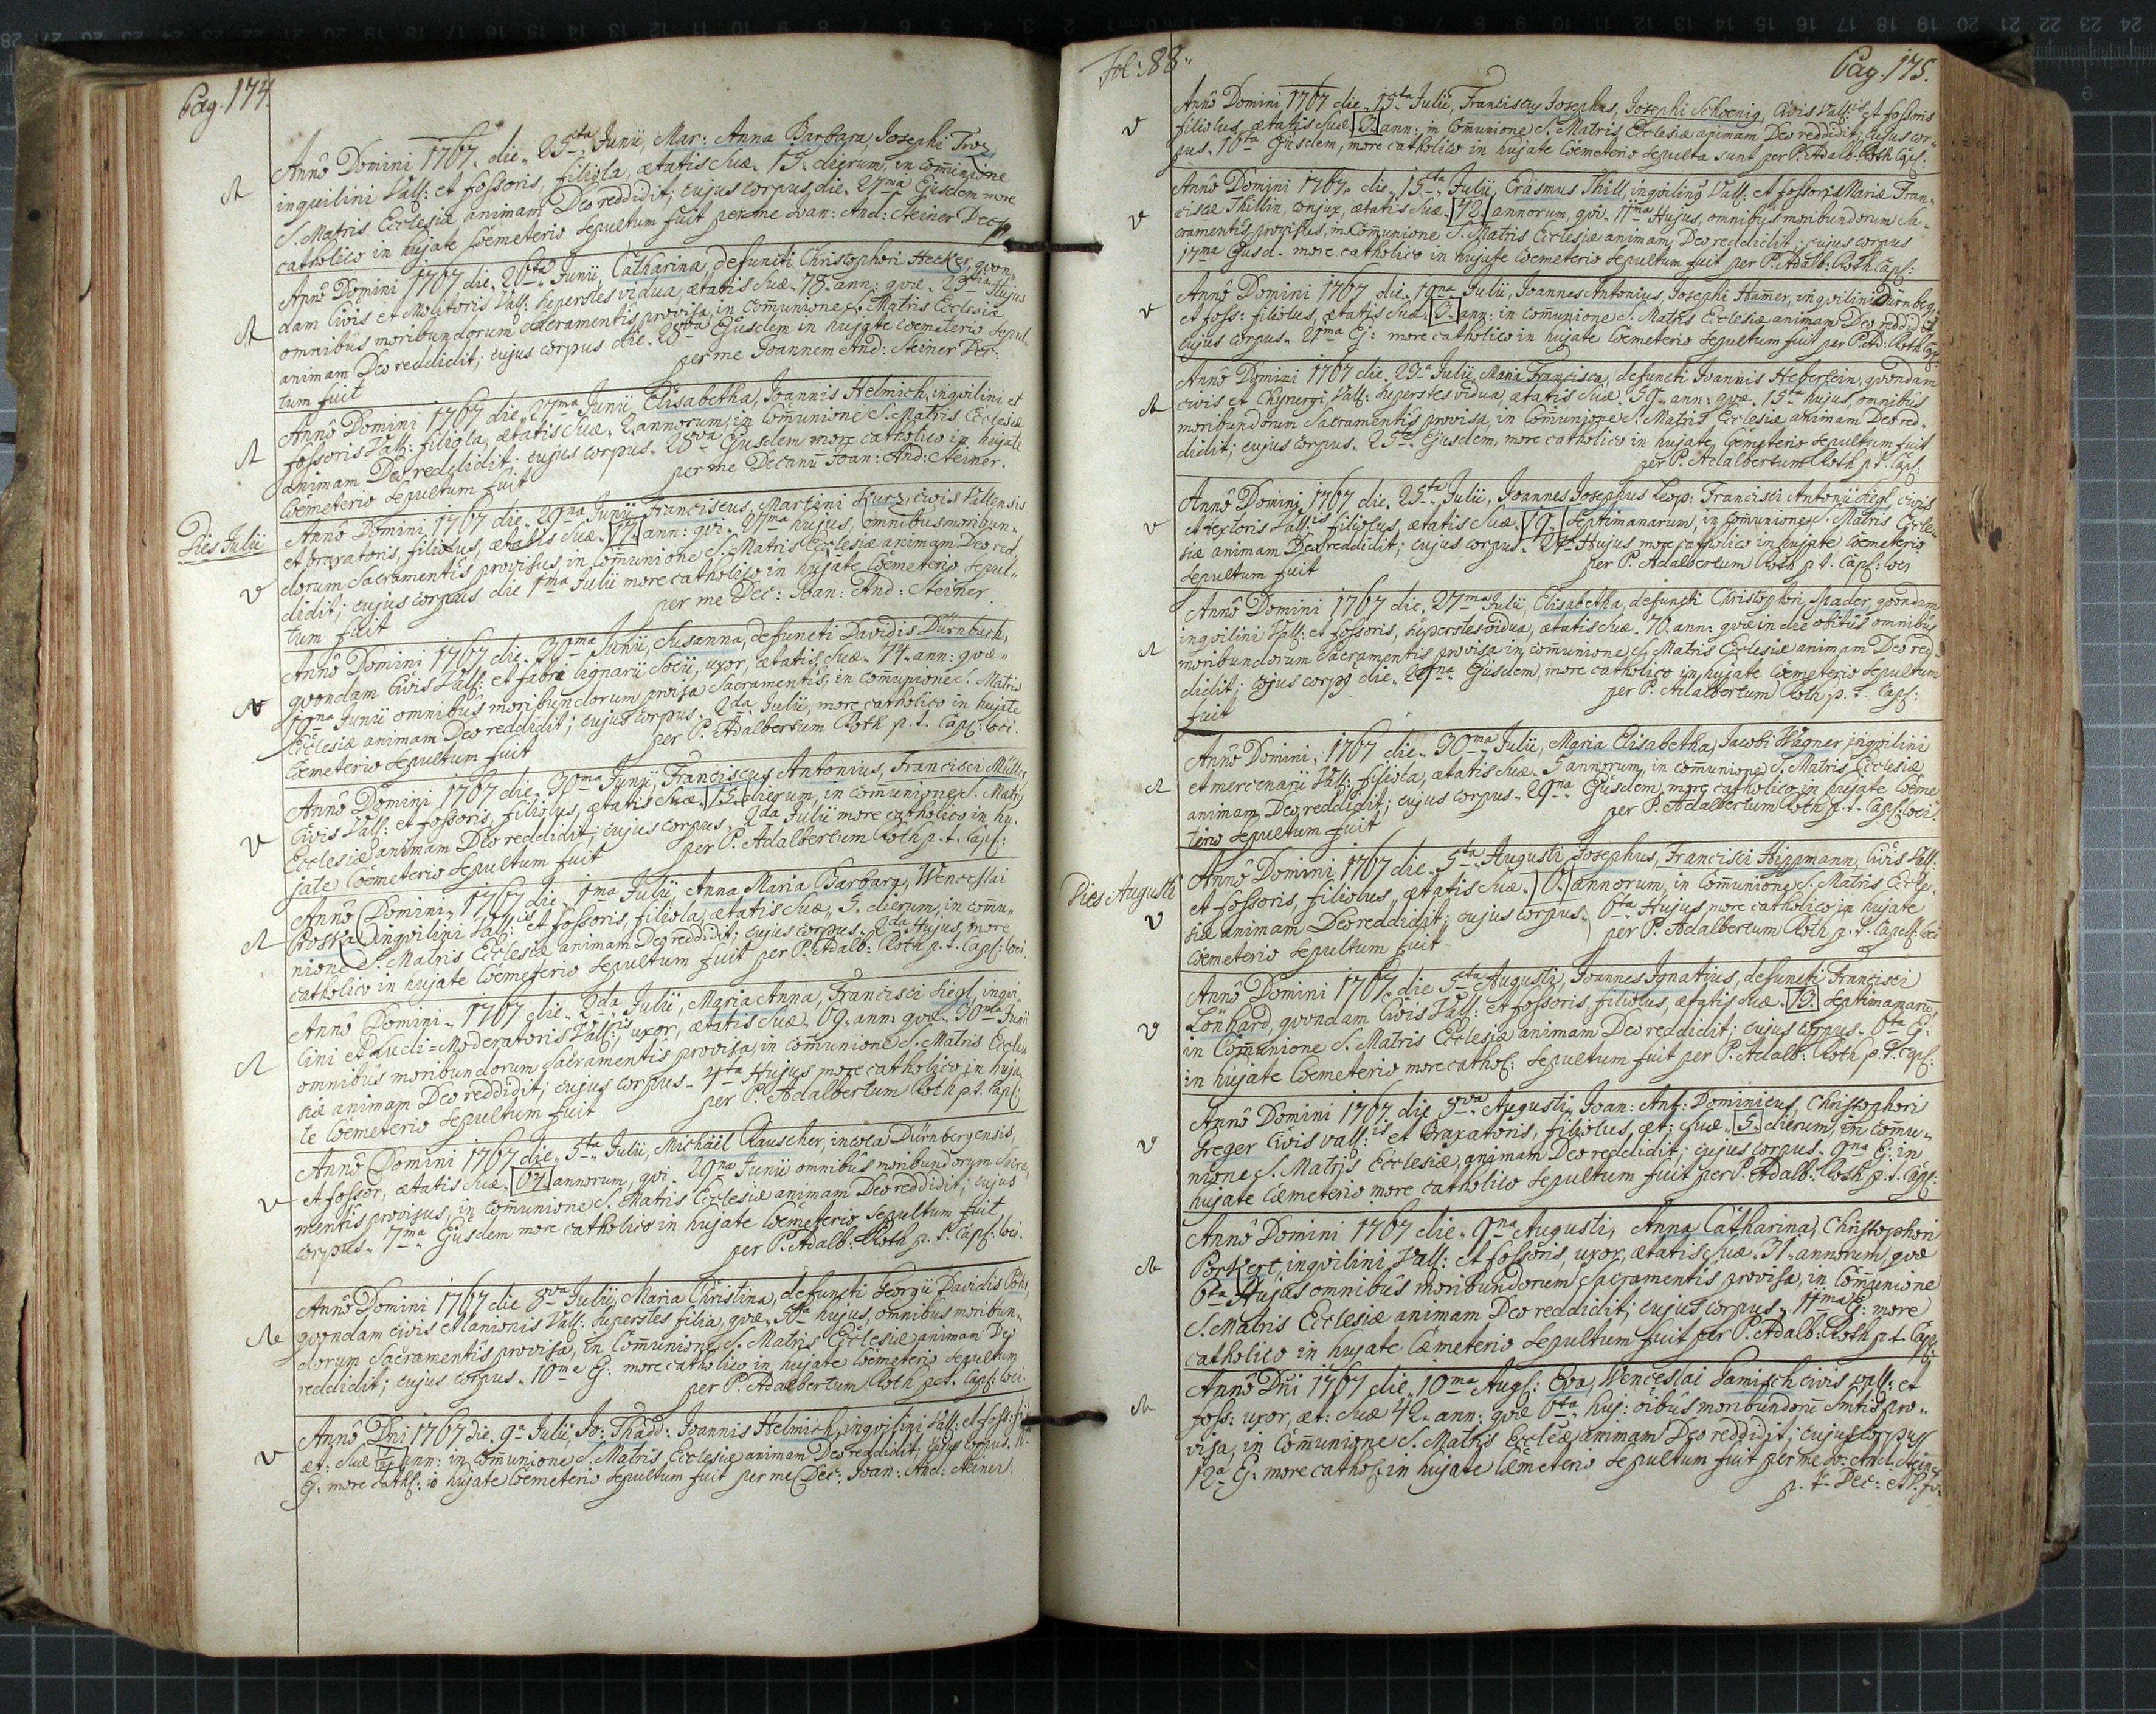 Pag. 174.
Annô Domini 1767. die. 25ta Junii, Mar: Anna Barbara, Josephi
inquilini Vall: et fossoris, filiola, ætatis suæ. 15. dierum, in communione
S. Matris Ecclesiæ animam Deo reddidit; cujus corpus, die. 27ma Ejusdem more
catholico in hujate Cœmeterio sepultum fuit per me Joan: And: Steiner Dec:
Annô Domini 1767 die. 26ta Junii, Catharina, defuncti Christophori Hecker, qvon„
dam Civis et Molitoris Vall: superstes vidua, ætatis suæ. 78. ann: qvæ. 23tia Hujus
omnibus moribundorum Sacramentis provisa, in communione S. Matris Ecclesiæ
animam Deo reddidit; cujus corpus die. 28va Ejusdem in hujate Cœmeterio sepul„
tum fuit per me Joannem And: Steiner Dec:
Annô Domini 1767 die. 27ma Junii, Elisabetha, Joannis Helmich, inqvilini et
fossoris Vall: filiola, ætatis suæ. 2. annorum, in Communione S. Matris Ecclesiæ
animam Deo reddidit: cujus corpus. 28va Ejusdem more catholico in hujate
Cœmeterio sepultum fuit per me Decanū Joan: And: Steiner.
Annô Domini 1767 die. 29na Junii Franciscus, Martini Kurz, civis Vallensis
et braxatoris, filiolus, ætatis suæ. 17. ann: qvi. 27ma hujus, omnibus moribun„
dorum Sacramentis provisus, in communione S. Matris Ecclesiæ animam Deo red„
didit; cujus corpus die 1ma Julii more catholico in hujate Cœmeterio sepul„
tum fuit per me Dec: Joan: And: Steiner.
Dies Julii
Annô Domini 1767 die. 30ma Junii, Susanna, defuncti Davidis Dürnbach,
qvondam Civis Vall: et fabri lignarii Socii, uxor, ætatis suæ. 74. ann: qvæ„
19na Junii omnibus moribundorum provisa Sacramentis, in communione S. Matris
Ecclesiæ animam Deo reddidit; cujus corpus. 2da Julii, more catholico in hujate
Cœmeterio sepultum fuit per P. Adalbertum Roth p. t. Capl: loci.
Annô Domini 1767 die. 30ma Junii, Franciscus Antonius, Francisci Müller
Civis Vall: et fossoris, filiolus, ætatis suæ. 15. dierum, in communione S. Matris
Ecclesiæ animam Deo reddidit; cujus corpus. 2da Julii more catholico in hu„
jate Cœmeterio sepultum fuit per P. Adalbertum Roth p. t. Capl:
Annô Domini. 1767 die. 1ma Julii, Anna Maria Barbara, Wenceslai
Proska inqvilini Vallis et fossoris, filiola, ætatis suæ. 5. dierum, in commu„
nione S. Matris Ecclesiæ animam Deo reddidit: cujus corpus. 2da Hujus, more
catholico in hujate Cœmeterio sepultum fuit per P. Adalb: Roth p. t. Capl: loci.
Annô Domini. 1767 die. 2da Julii, Maria Anna, Francisci Siegl, inqvi„
lini et Ludi=Moderatoris Vallis, uxor, ætatis suæ. 69. ann: qvæ. 30ma Junii
omnibus moribundorum Sacramentis provisa, in communione S. Matris Eccle„
siæ animam Deo reddidit; cujus corpus. 4ta Hujus more catholico in huja„
te Cœmeterio sepultum fuit per P. Adalbertum Roth p. t. Capl:
Annô Domini 1767 die. 5ta Julii, Michäel Rauscher, incola Dürnbergensis,
et fossor, ætatis suæ. 67. annorum, qvi. 29na Junii omnibus moribundorum Sacra„
mentis provisus, in Communione S. Matris Ecclesiæ animam Deo reddidit; cujus
corpus. 7ma Ejusdem more catholico in hujate Cœmeterio sepultum fuit
per P. Adalb: Roth p. t. Capl: loci.
Annô Domini 1767 die 8va Julii, Maria Christina, defuncti Georgii Davidis
qvondam civis et Lanionis Vall: superstes filia, qvæ. 5ta hujus, omnibus moribun„
dorum Sacramentis provisa, in Communione S. Matris Ecclesiæ animam Deo
reddidit; cujus corpus. 10ma Ej: more catholico in hujate Cœmeterio sepultum
per P. Adalbertum Roth p. t. Capl: loci.
Annô Dni 1767 die. 9a Julii, Jo: Thadd: Joannis Helmich, inqvilini Vall: et foss:
æt: suæ ann: in communione S. Matris Ecclesiæ animam Deo reddidit; cujus corpus.
Ej: more cathl: in hujate Cœmeterio sepultum fuit per me Dec: Joan: And: Steiner.
Fol: 88.
Pag. 175.
Annô Domini 1767 die. 15ta Julii, Franciscus Josephus, Josephi Schoenig, Civis Vallis et fossoris
filiolus, ætatis suæ ann: in Communione S. Matris Ecclesiæ animam Deo reddidit; cujus cor„
pus. 16ta Ejusdem, more catholico in hujate Cœmeterio sepulta sunt per P. Adalb: Roth Capl:
Annô Domini 1767. die. 15ta Julii, Erasmus Thill, inqvilinus Vall: et fossor: Mariæ Fran„
ciscæ Thillin, conjux, ætatis suæ. 42. annorum, qvi. 11ma Hujus, omnibus moribundorum Sa„
cramentis provisus, in Communione S. Matris Ecclesiæ animam Deo reddidit; cujus corpus
17ma Ejusd. more catholico in hujate Cœmeterio sepultum fuit per P. Adalb: Roth Capl:
Annô Domini 1767 die. 19na Julii, Joannes Antonius, Josephi Hamer, inqvilini Dürnberg:
et foss: filiolus, ætatis suæ. ann: in communione S. Matris Ecclesiæ animam Deo reddidit
cujus corpus. 21ma Ej: more catholico in hujate Cœmeterio sepultum fuit per P. Ad: Roth Cap:
Annô Domini 1767 die. 23a Julii, Maria Francisca, defuncti Joannis Heberlein, qvondam
civis et Chyrurgi, Vall: superstes vidua, ætatis suæ. 59. ann: qvæ. 15ta hujus omnibus
moribundorum Sacramentis provisa, in Communione S. Matris Ecclesiæ animam Deo red„
didit; cujus corpus. 25ta Ejusdem, more catholico in hujate Cœmeterio sepultum fuit
per P. Adalbertum Roth p. t. Capl:
Annô Domini 1767 die. 25ta Julii, Joannes Josephus Leop: Francisci Antonii Siegl civis
et textoris Vallis filiolus, ætatis suæ. 19. septimanarum, in communione S. Matris Eccle„
siæ animam Deo reddidit; cujus corpus. Hujus more catholico in hujate Cœmeterio
sepultum fuit per P. Adalbertum Roth p. t. Capl: loci
Annô Domini 1767 die. 27ma Julii, Elisabetha, defuncti Christophori Spader, qvondam
inqvilini Vall: et fossoris, superstes vidua, ætatis suæ. 70. ann: qvæ in die obitûs omnibus
moribundorum Sacramentis provisa in communione S. Matris Ecclesiæ animam Deo red„
didit; cujus corpus die. 29na Ejusdem, more catholico in hujate Cœmeterio sepultum
fuit per P. Adalbertum Roth p. t. Capl:
Annô Domini, 1767 die. 30ma Julii, Maria Elisabetha, Jacobi Wagner inqvilini
et mercenarii Vall: filiola, ætatis suæ. 5 annorum, in communione S. Matris Ecclesiæ
animam Deo reddidit; cujus corpus. 29na Ejusdem, more catholico in hujate Cœme„
terio sepultum fuit per P. Adalbertum Roth p. t. Capl: loci.
Dies Augusti
Annô Domini 1767 die. 5ta Augusti Josephus, Francisci Hippmann, Civis Vall:
et fossoris, filiolus, ætatis suæ. 6. annorum, in Communione S. Matris Eccle„
siæ animam Deo reddidit; cujus corpus. 6ta Hujus more catholico in hujate
Cœmeterio sepultum fuit per P. Adalbertum Roth p. t. Capell: loci
Annô Domini 1767 die 5ta Augusti, Joannes Ignatius, defuncti Francisci
Lönhard, qvondam Civis Vall: et fossoris filiolus, ætatis suæ. 13. septimanarū,
in Communione S. Matris Ecclesiæ animam Deo reddidit; cujus corpus. 6ta Ej:
in hujate Cœmeterio more cathol: sepultum fuit per P. Adalb: Roth p. t. Capl:
Annô Domini 1767 die 8va Augusti, Joan: Ant: Dominicus, Christophori
Greger Civis Vall:is et Braxatoris, filiolus, æt: suæ. 5. dierum, in Commu„
nione S. Matris Ecclesiæ, animam Deo reddidit; cujus corpus. 9na Ej: in
hujate Cœmeterio more catholico sepultum fuit per P. Adalb: Roth p. t. Capl:
Annô Domini 1767 die. 9na Augusti, Anna Catharina, Christophori
Porkert, inqvilini Vall: et fossoris, uxor, ætatis suæ. 31. annorum, qvæ
6ta Hujus omnibus moribundorum Sacramentis provisa, in Communione
S. Matris Ecclesiæ animam Deo reddidit; cujus corpus. 11ma Ej: more
catholico in hujate Cœmeterio sepultum fuit per P. Adalb: Roth p. t. Capl:
Annô Dni 1767 die. 10ma Augl: Eva, Wenceslai Hanisch civis vall: et
foss: uxor, æt: suæ 42. ann: qvæ 6ta huj: oibus moribundorū Smtis pro„
visa, in Communione S. Matris Eccleæ animam Deo reddidit; cujus corpus
12a Ej: more cathol: in hujate Cœmeterio sepultum fuit per me Jo: And. Steiner
p. t. Dec: